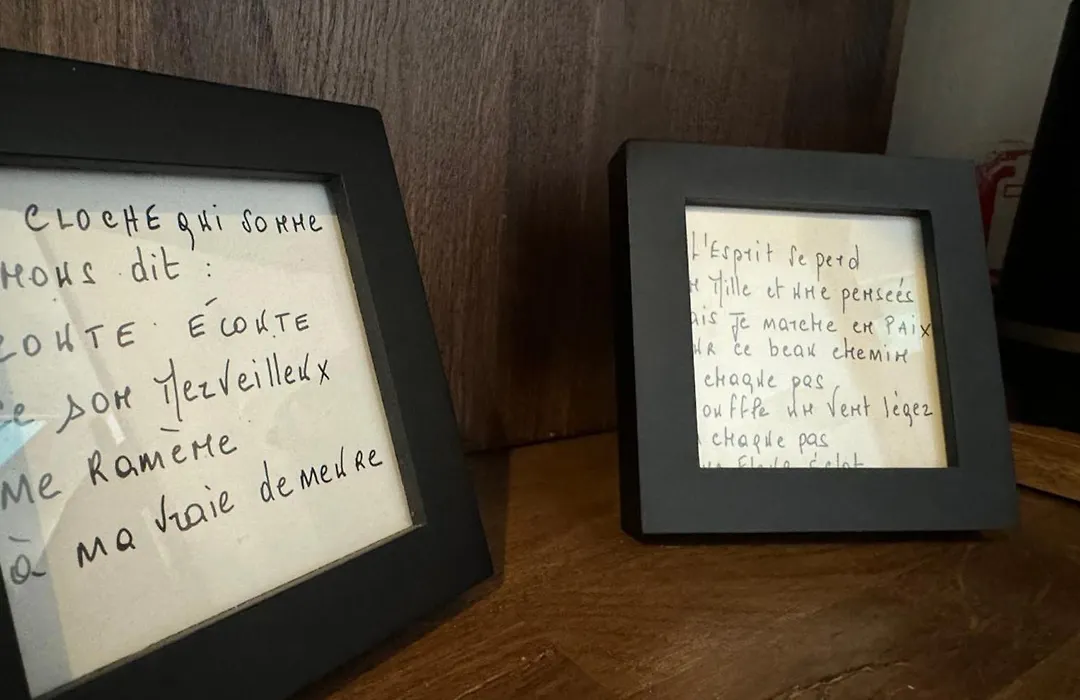 CLOCHE qui sonne
nous dit :
ÉCOUTE
ce son Merveilleux
me Ramène
à ma vraie demeure
L'Esprit se perd
Mille et une pensées
ais Je marche en PAIX
ur ce beau chemin
chaque pas
ouffle un vent léger
chaque pas